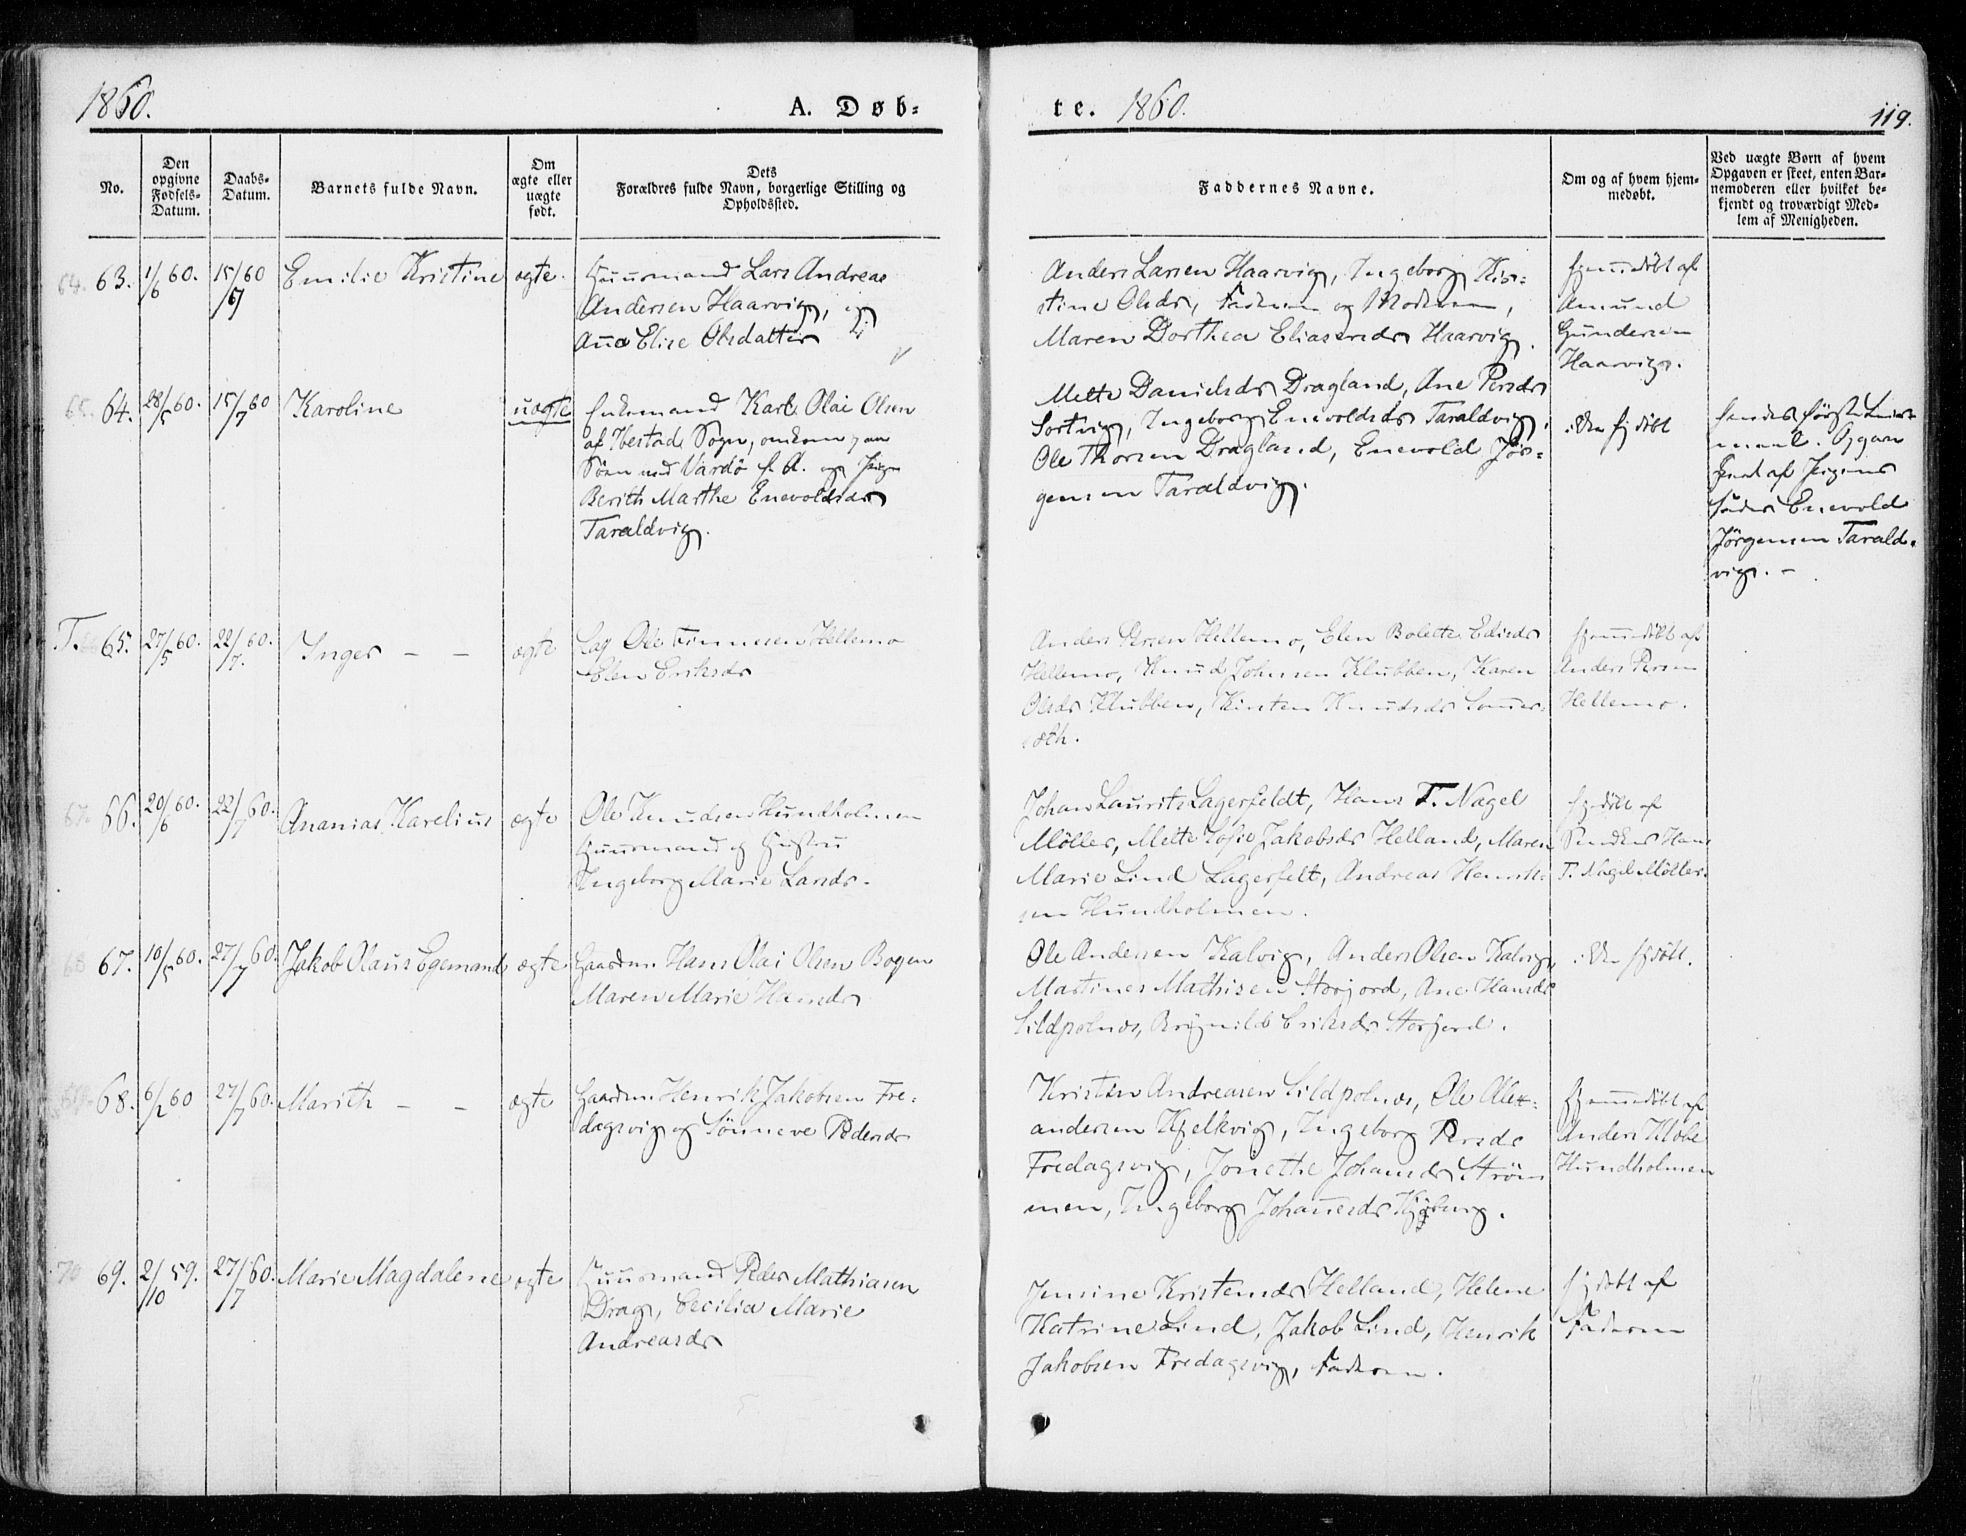 1860.
A. Døb-
te. 1860.
119.
No.
Den opgivne Fødsels-Datum.
Daabs-Datum.
Barnets fulde Navn.
Om ægte eller uægte født.
Dets Forældres fulde Navn, borgerlige Stilling og Opholdssted.
Faddernes Navne.
Om og af hvem hjem-
medøbt.
Ved uægte Børn af hvem
Opgaven er skeet, enten Bar-
nemoderen eller hvilket be-
kjendt og troværdigt Med-
lem af Menigheden.
64. 63. 1/6 60. 15/7 60 Emilie Kristine ægte.
Huusmand Lars Andreas
Andersen Haarvig, og
Ana Elise Olsdatter
Anders Larsen Haarvig, Ingeborg Kir-
stine Olsdr, Faderen og Moderen,
Maren Dorthea Eliasendr Haarvig.
Hjemmedöbt af
Amund
Gundersen
Haarvig.
65. 64. 28/5 60. 15/7 60 Karoline uægte
Enkemand Karl Olai Olsen
af Ibestad Sogn, omkom paa
Söen ved Vardö f. A. og Pigen
Berith Marthe Enevoldsdr
Taraldvig.
Mette Danielsdr Dragland, Ane Persdr
Sortvig, Ingeborg Enevoldsdr Taraldvig,
Ole Thorsen Dragland, Enevold Jör-
gensen Taraldvig.
ikke hjdöbt
hendes første Leier-
maal. Opgaven
skeet af Pigens
Fader Enevold
Jörgensen Tarald-
vig. -
T. 65. 27/5 60. 22/7 60. Inger - - ægte
Lap Ole Finnesen Hellemo
Elen Eriksdr
Anders Persen Hellemo, Elen Bolette Edisdr
Hellemo, Knud Johnsen Klubben, Karen
Olsdr Klubben, Kirsten Knudsdr Sommer-
sæth.
Hjemmedöbt af
Anders Persen
Hellemo.
67. 66. 20/6 60. 22/7 60. Ananias Karelius ægte
Ole Knudsen Hundholmen
Huusmand og Hustru
Ingeborg Marie Larsdr.
Johan Laurits Lagerfeldt, Hans T. Nagel
Möller, Mette Sofie Jakobsdr Helland, Maren
Marie Lind Lagerfelt, Andreas Henrik-
sen Hundholmen.
Hjdöbt af
Hans
T. Nagel Möller.
68 67. 10/5 60. 27/7 60. Jakob Olaus Egemand ægte
Gaardm. Hans Olai Olsen Bogen
Maren Marie Hansdr
Ole Andersen Kalvig, Anders Olsen Kalvig,
Martines Mathisen Storjord, Ane Hansdr
Sildpolnes, Brynild Eriksdr Storjord.
ikke hjdöbt.
69. 68. 6/2 60 27/7 60. Marith - - ægte
Gaardm. Henrik Jakobsen Fre-
dagsvig og Sönneve Pedersdr
Kristen Andreasen Sildpolnes, Ole Alex-
andersen Kjelkvig, Ingeborg Persdr
Fredagsvig, Jonette Johansdr Ström-
men, Ingeborg Johannesdr
Hjemmedöbt af
Anders Klobe
Hundholmen
70 69. 2/10 59. 27/7 60. Marie Magdalene ægte
Huusmand Peder Mathiasen
Drag, Cecilia Marie
Andreasdr
Jensine Kristensdr Helland, Helene
Katrine Lind, Jakob Lind, Henrik
Jakobsen Fredagsvig, Faderen.
Hjdöbt af
Faderen